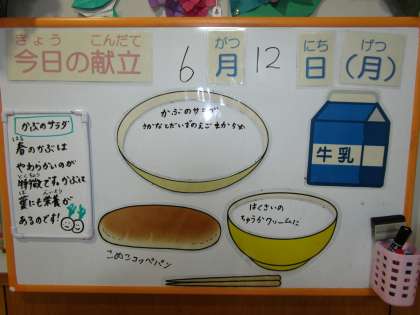 きょう こんだて
今日の献立
6 がつ月 12 にち日 げつ(月)
かぶのサラダ
春のかぶは
やわらかいのが
特徴です。かぶは
葉にも栄養が
あるのです!
かぶのサラダ
さかなとだいずのえごまがらめ
牛乳
はくさいの
ちゅうかクリームに
こめこコッペパン